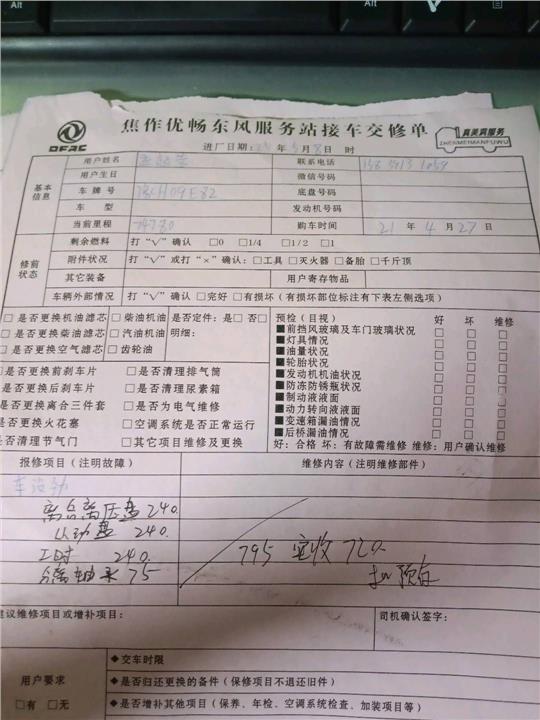 Alt
Ctrl
DFAC
焦作优畅东风服务站接车交修单
真美满服务
ZHENMEIMANFUWU
进厂日期: 年 月 8 日 时
用户姓名 联系电话
基本信息
用户生日 微信号码
车牌号 底盘号码
车型 发动机号码
当前里程 购车时间 21 年 4 月 27 日
修前状态
剩余燃料 打“√”确认 □0 □1/4 □1/2 □1
附件状况 打“√”或打“×”确认:□工具 □灭火器 □备胎 □千斤顶
其它装备 用户寄存物品
车辆外部情况 打“√”确认 □完好 □有损坏(有损坏部位标注有下表左侧选项)
□是否更换机油滤芯 □柴油机油 是否定件:是□ 否□
□是否更换柴油滤芯 □汽油机油 明细:
□是否更换空气滤芯 □齿轮油
□是否更换前刹车片 □是否清理排气筒
□是否更换后刹车片 □是否清理尿素箱
□是否更换离合三件套 □是否为电气维修
□是否更换火花塞 □空调系统是否正常运行
□是否清理节气门 □其它项目维修及更换
预检(目视) 好 坏 维修
■前挡风玻璃及车门玻璃状况 □ □ □
■灯具情况 □ □ □
■油量状况 □ □ □
■轮胎状况 □ □ □
■发动机机油状况 □ □ □
■防冻防锈瓶状况 □ □ □
■制动液液面 □ □ □
■动力转向液液面 □ □ □
■变速箱漏油情况 □ □ □
■后桥漏油情况 □ □ □
好:合格 坏:有故障需维修 维修:用户确认维修
报修项目(注明故障) 维修内容(注明维修部件)
车没劲
离合离压盘 240.
从动盘 240.
工时 240.
分离轴承 75
795 实收 720.
建议维修项目或增补项目: 司机确认签字:
用户要求
□有 □无
◆交车时限
◆是否归还更换的备件(保修项目不退还旧件)
◆是否增补其他项目(保养、年检、空调系统检查、加装项目等)